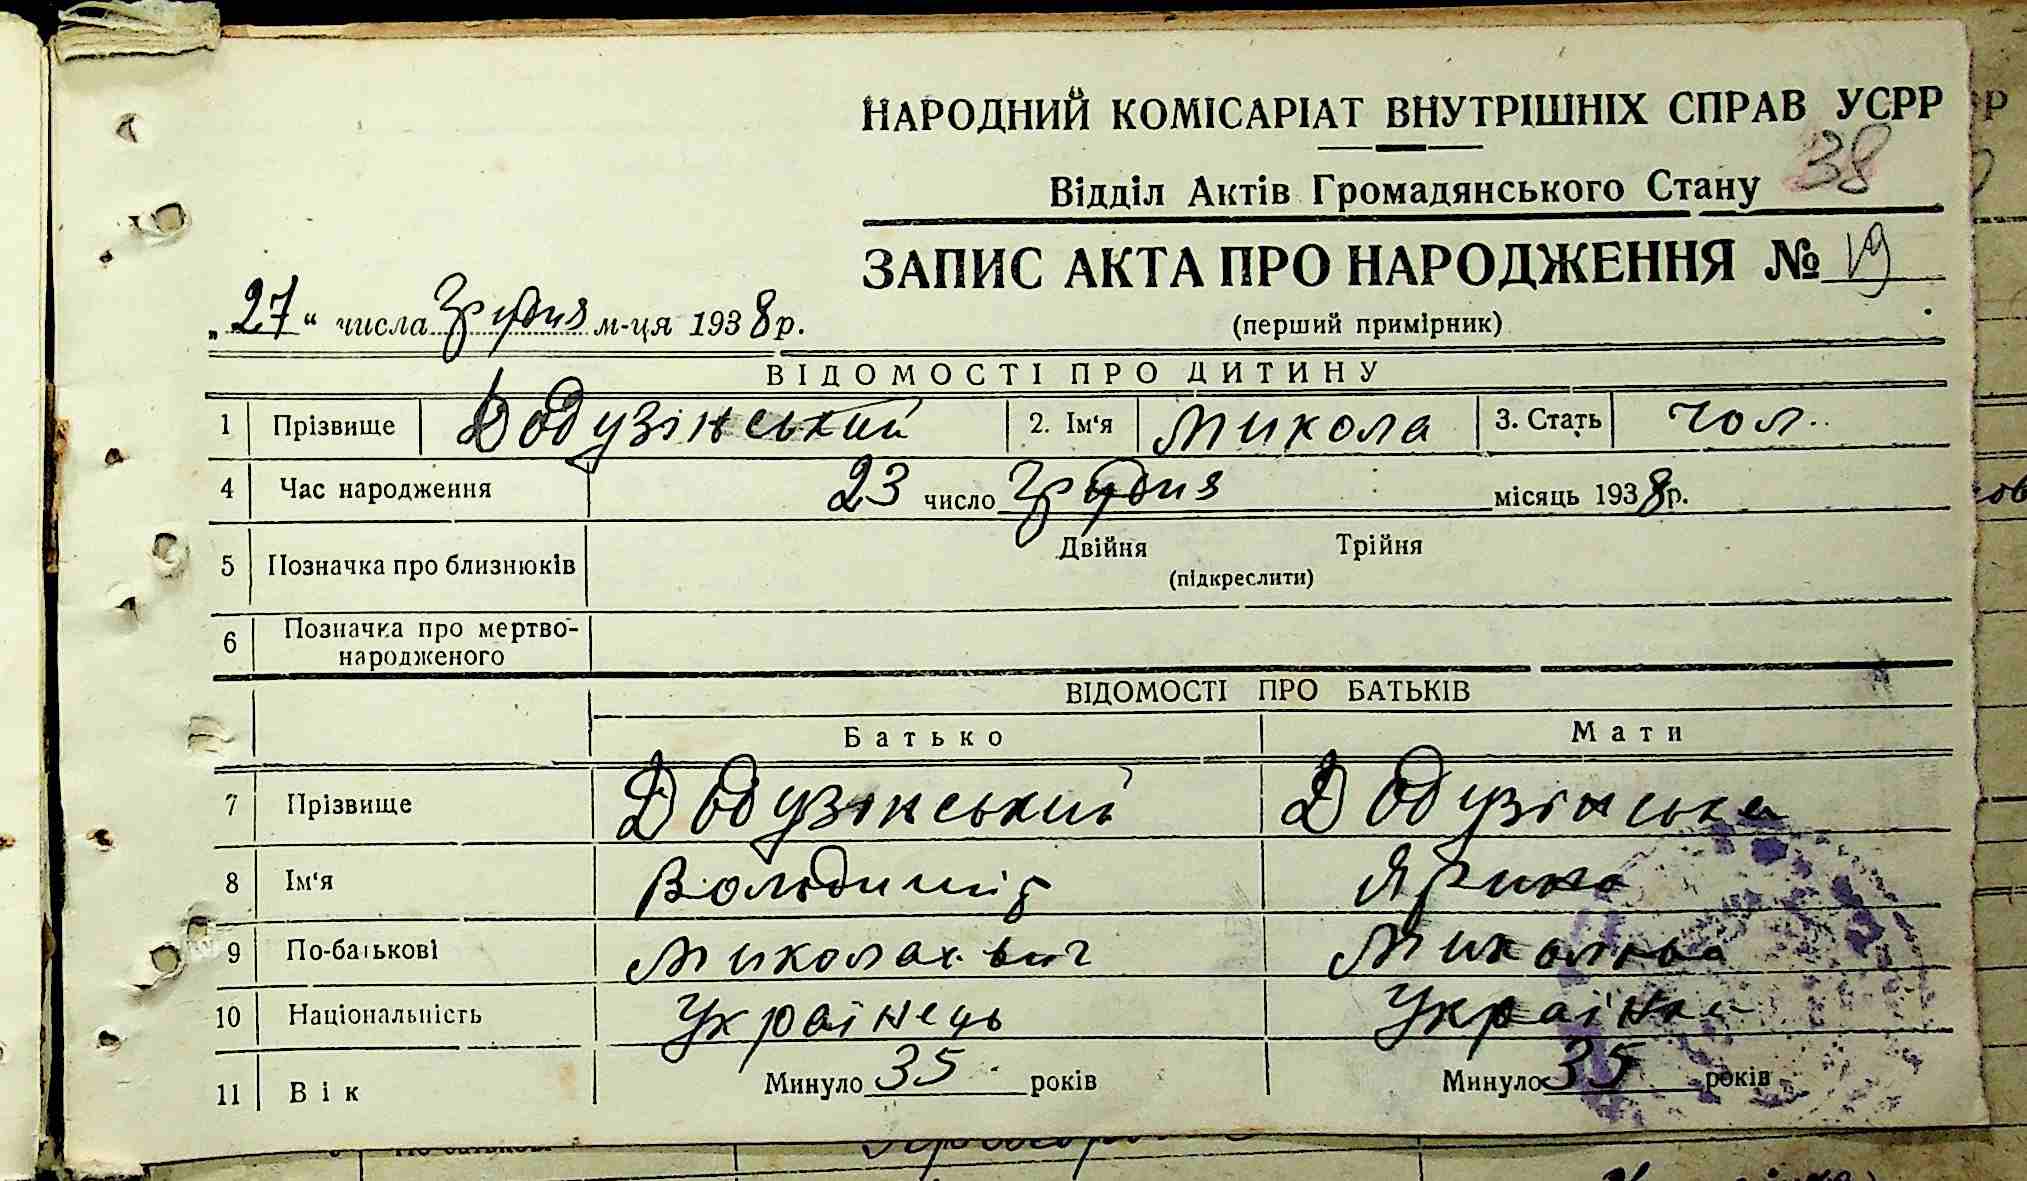 НАРОДНИЙ КОМІСАРІАТ ВНУТРІШНІХ СПРАВ УСРР
38
Відділ Актів Громадянського Стану
ЗАПИС АКТА ПРО НАРОДЖЕННЯ № 19
„27“ числа Грудня м-ця 1938 р.
(перший примірник)
ВІДОМОСТІ ПРО ДИТИНУ
1 Прізвище Додузінський 2. Ім‘я Микола 3. Стать чол.
4 Час народження 23 число Грудня місяць 1938 р.
5 Позначка про близнюків Двійня Трійня
(підкреслити)
6 Позначка про мертво-
народженого
ВІДОМОСТІ ПРО БАТЬКІВ
Батько Мати
7 Прізвище Додузінський Додузінська
8 Ім‘я Володимір Ярина
9 По-батькові Миколаєвич
10 Національність Українець Українка
11 Вік Минуло 35 років Минуло 35 років